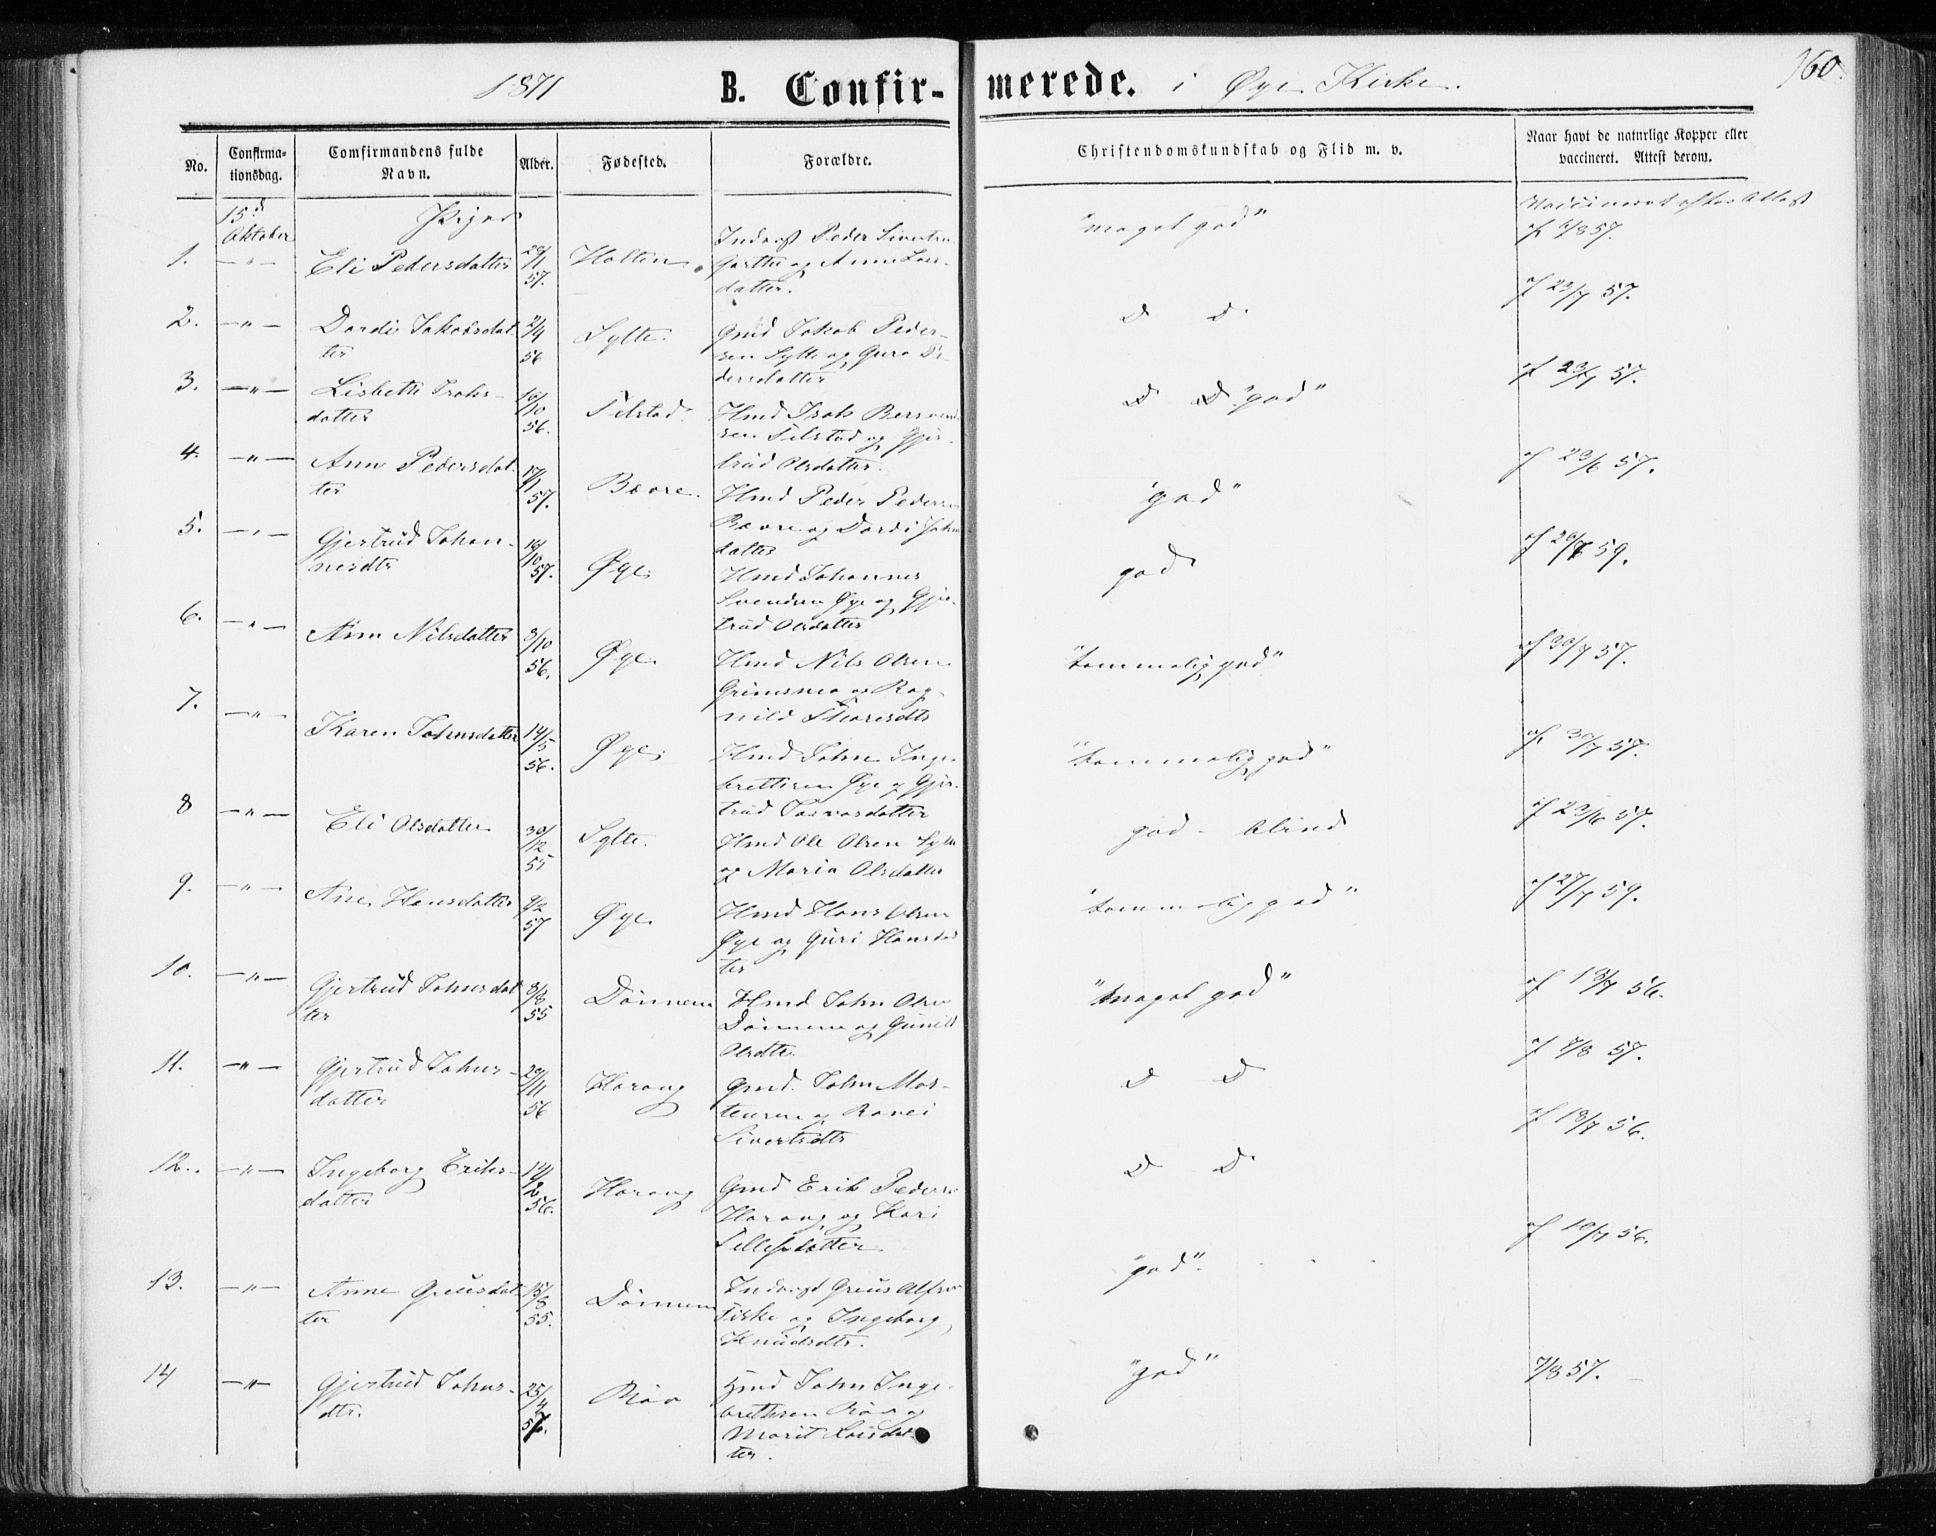 1871 B. Confir-merede. i Øye Kirke. 160.
No. Confirma-tionsdag. Comfirmandens fulde Navn. Alder. Fødested. Forældre. Christendomskundskab og Flid m. v. Naar havt de naturlige Kopper eller vaccineret. Attest derom.
15d Oktober Piger
1. -"- Eli Pedersdatter 57. Holten Peder Sivertsen og Anne Lars-datter. "meget god" Vaccineret efter Attest af 7/8 57.
2. -"- Dordi Jakobsdat-ter 2/4 56 Sylte. Gmd Jakob Peder-sen Sylte og Guro Pe-dersdatter D D. af 23/7 57.
3. -"- Lisbeth Isaks-datter 16/10 56. Silstad. Hmd Isak Bersvend-sen Silstad og Gjer-trud Olsdatter. D D "god" af 23/7 57.
4. -"- Ann Pedersdat-ter 17/1 57. Bævre. Hmd Peder Pedersen Bævre og Dordi John-datter "god" af 23/6 57.
5. -"- Gjertrud Johan-nesdtr 16/10 57. Øye. Hmd Johannes Svendsen Øye og Gjer-trud Olsdatter god af 26/7 59.
6. -"- Ann Nilsdatter 3/10 56. Øye. Hmd Nils Olsen Grimsmo og Rag-nild Thoresdtr "temmelig god" af 30/7 57.
7. -"- Karen Johnsdatter 14/5 56. Øye. Hmd John Inge-brettsen Øye og Gjer-trud "temmelig god" af 30/7 57.
8 -"- Eli Olsdatter 30/12 55 Sylte. Hmd Ole Olsen Sylte og Maria Olsdatter god - blind af 23/6 57.
9. -"- Ane Hansdatter 9/2 57 Øye. Hmd Hans Olsen Øye og Guri Hansdat-ter "temmelig god" af 27/7 59.
10. -"- Gjertrud Johnsdat-ter 8/8 55 Dønnem Hmd John Olsen Dønnem og Gunild Olsdtr. "meget god" af 13/7 56.
11. -"- Gjertrud Johns-datter 29/11 56 Harang Gmd. John Mor-tensen og Ranei Sivertsdtr D D af 7/8 57.
12. -"- Ingeborg Eriks-datter 14/2 56. Harang Gmd Erik Peders. Harang og Kari Sillesdatter D D af 13/7 56.
13. -"- Anne Greusdat-ter 55. Dønnem Greus Alfsen Fiske og Ingeborg Knudsdtr. "god". af 10/7 56.
14 -"- Gjertrud Johns-dtr. 25/4 57. Røv Hmd John Inge-brethsen Røv og Marit Larsdat-ter. "god" 7/8 57.